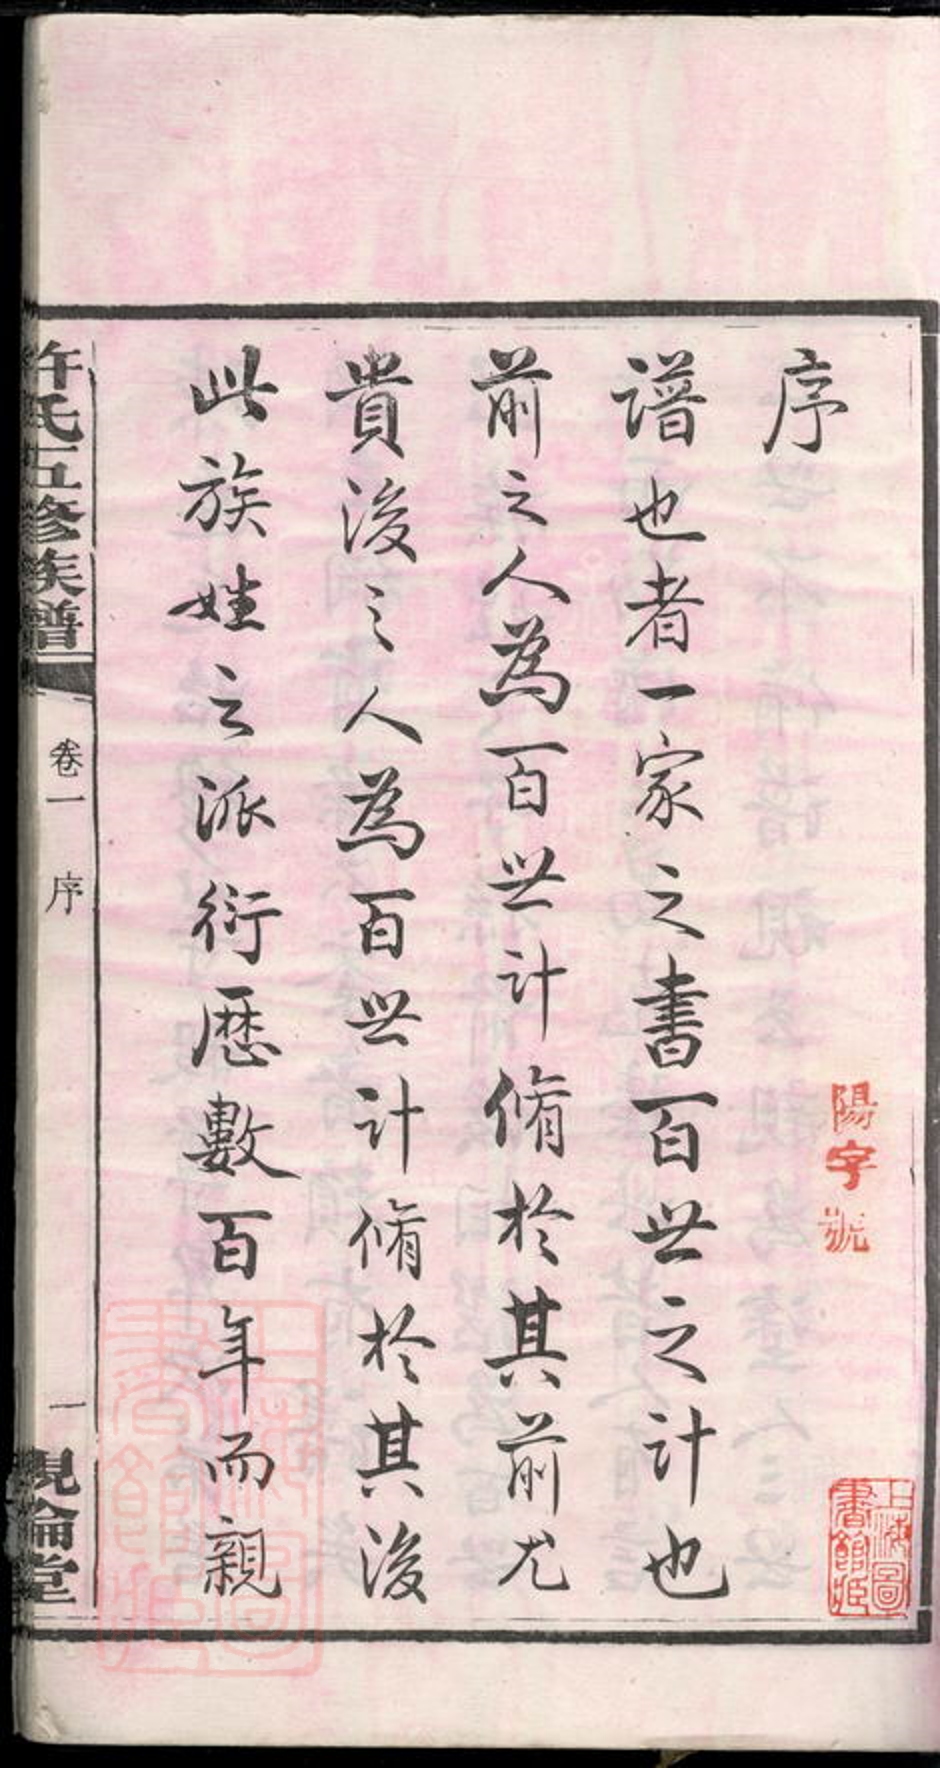 序
譜也者一家之書百世之計也
前之人為百世計脩於其前尤
貴後之人為百世計脩於其後
此族姓之派衍歷數百年而親
許氏五修族譜
卷一
序
一
親倫堂
陽字號
上海圖書館藏